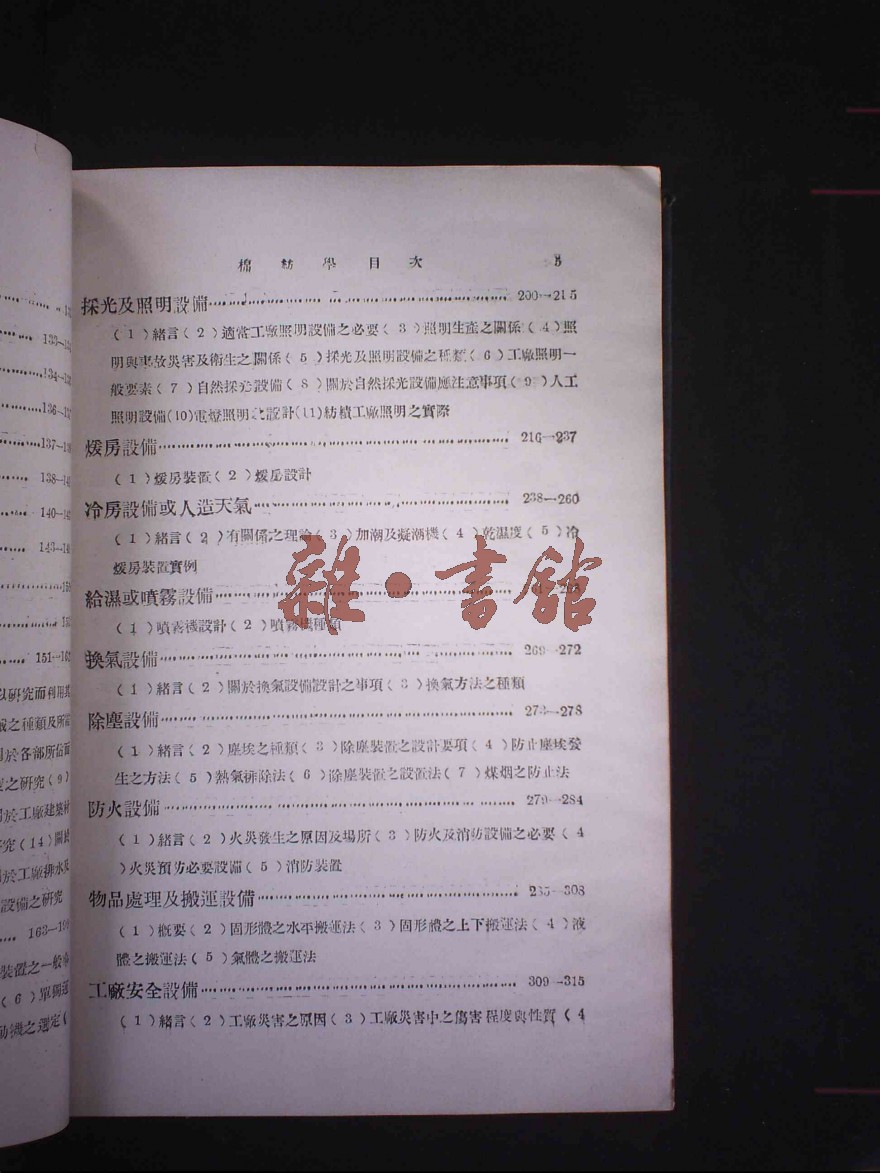 132
133—13
134—13
136—13
137—13
138—14
140—14
143—14
151—16
以研究而利用其
械之種類及所需
用於各部所佔面
度之研究(9)
用於工廠建築材
研究(14)關於
用於工廠排水及
設備之研究
163—19
裝置之一般
(6)單獨運
動機之選定(
棉紡學目次 5
採光及照明設備 200—215
(1)緒言(2)適當工廠照明設備之必要(3)照明生產之關係(4)照
明與事故災害及衛生之關係(5)採光及照明設備之種類(6)工廠照明一
般要素(7)自然採光設備(8)關於自然採光設備應注意事項(9)人工
照明設備(10)電燈照明之設計(11)紡積工廠照明之實際
煖房設備 216—237
(1)煖房裝置(2)煖房設計
冷房設備或人造天氣 238—260
(1)緒言(2)有關係之理論(3)加潮及凝潮機(4)乾濕度(5)冷
煖房裝置實例
給濕或噴霧設備
(1)噴霧機設計(2)噴霧機種類
換氣設備 269—272
(1)緒言(2)關於換氣設備設計之事項(3)換氣方法之種類
除塵設備 273—278
(1)緒言(2)塵埃之種類(3)除塵裝置之設計要項(4)防止塵埃發
生之方法(5)熱氣排除法(6)除塵裝置之設置法(7)煤烟之防止法
防火設備 279—284
(1)緒言(2)火災發生之原因及場所(3)防火及消防設備之必要(4
)火災預防必要設備(5)消防裝置
物品處理及搬運設備 285—308
(1)概要(2)固形體之水平搬運法(3)固形體之上下搬運法(4)液
體之搬運法(5)氣體之搬運法
工廠安全設備 309—315
(1)緒言(2)工廠災害之原因(3)工廠災害中之傷害程度與性質(4
雜·書館